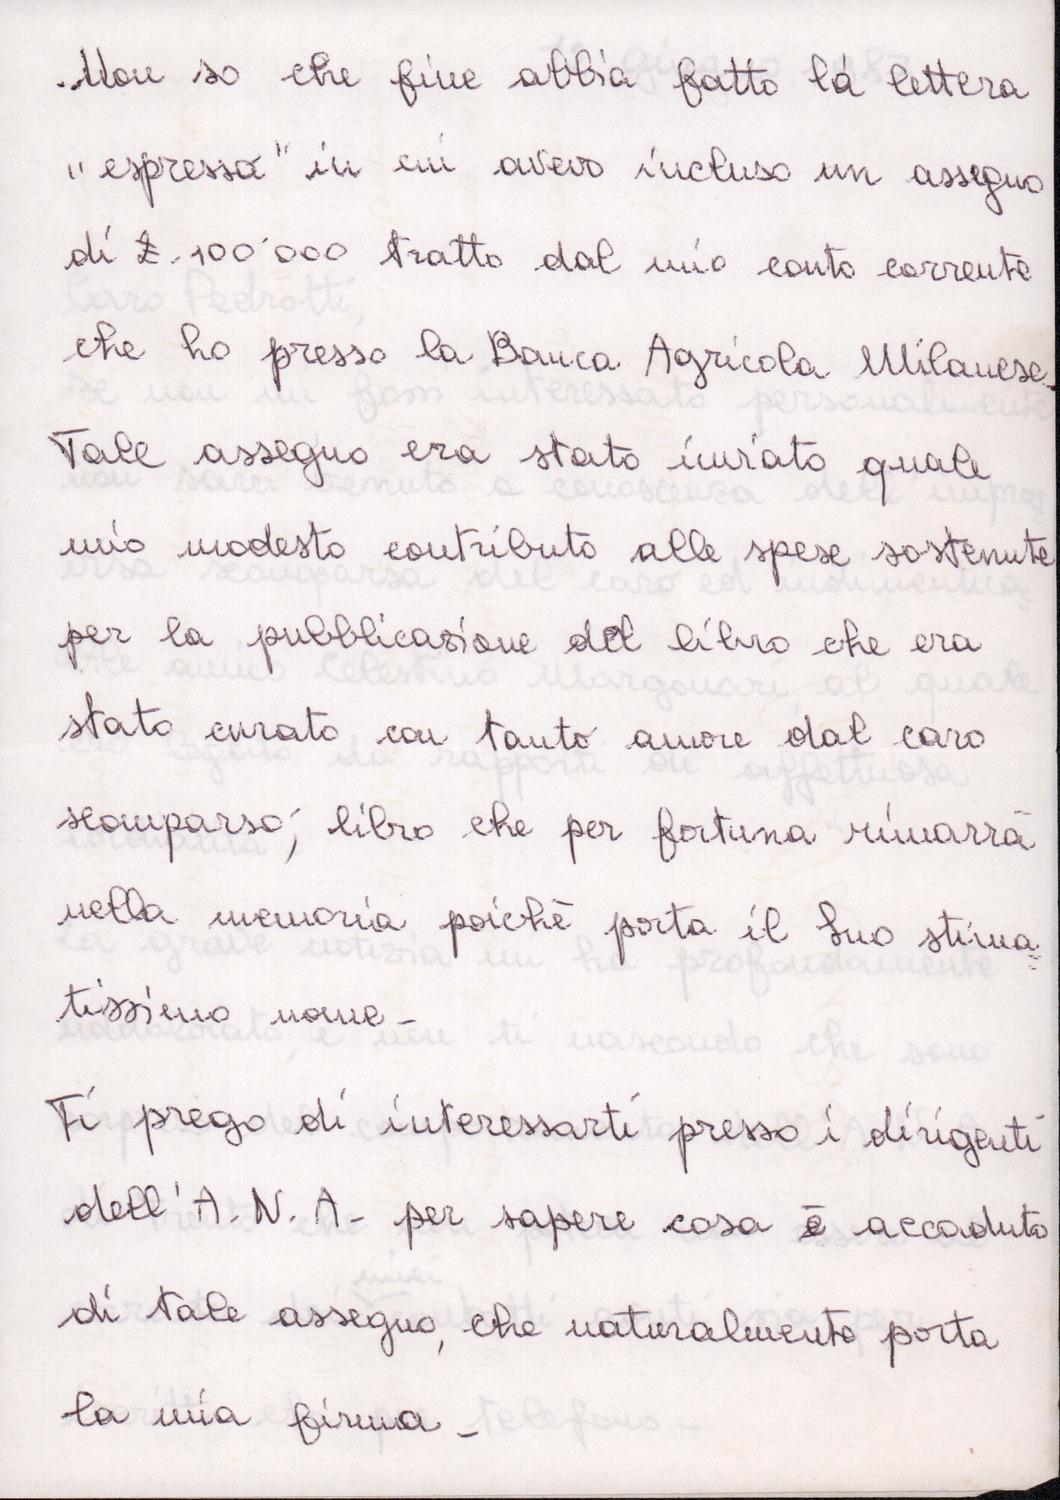 ..Non so che fine abbia fatto la lettera
"espresso" in cui avevo incluso un assegno
di £. 100'000 tratto dal mio conto corrente
che ho presso la Banca Agricola Milanese.
Tale assegno era stato inviato quale
mio modesto contributo alle spese sostenute
per la pubblicazione del libro che era
stato curato con tanto amore dal caro
scomparso; libro che per fortuna rimarrà
nella memoria poichè porta il Suo stima=
tissimo nome-
Ti prego di interessarti presso i dirigenti
dell'A.N.A- per sapere cosa è accaduto
di tale assegno, che naturalmente porta
la mia firma-